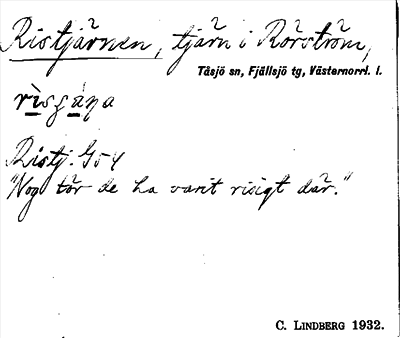 Ristjärnen, tjärn i Rörström,
Tåsjö sn, Fjällsjö tg, Västernorrl. l.
Ristj. G54
"Nog tör de ha varit risigt där."
C. LINDBERG 1932.